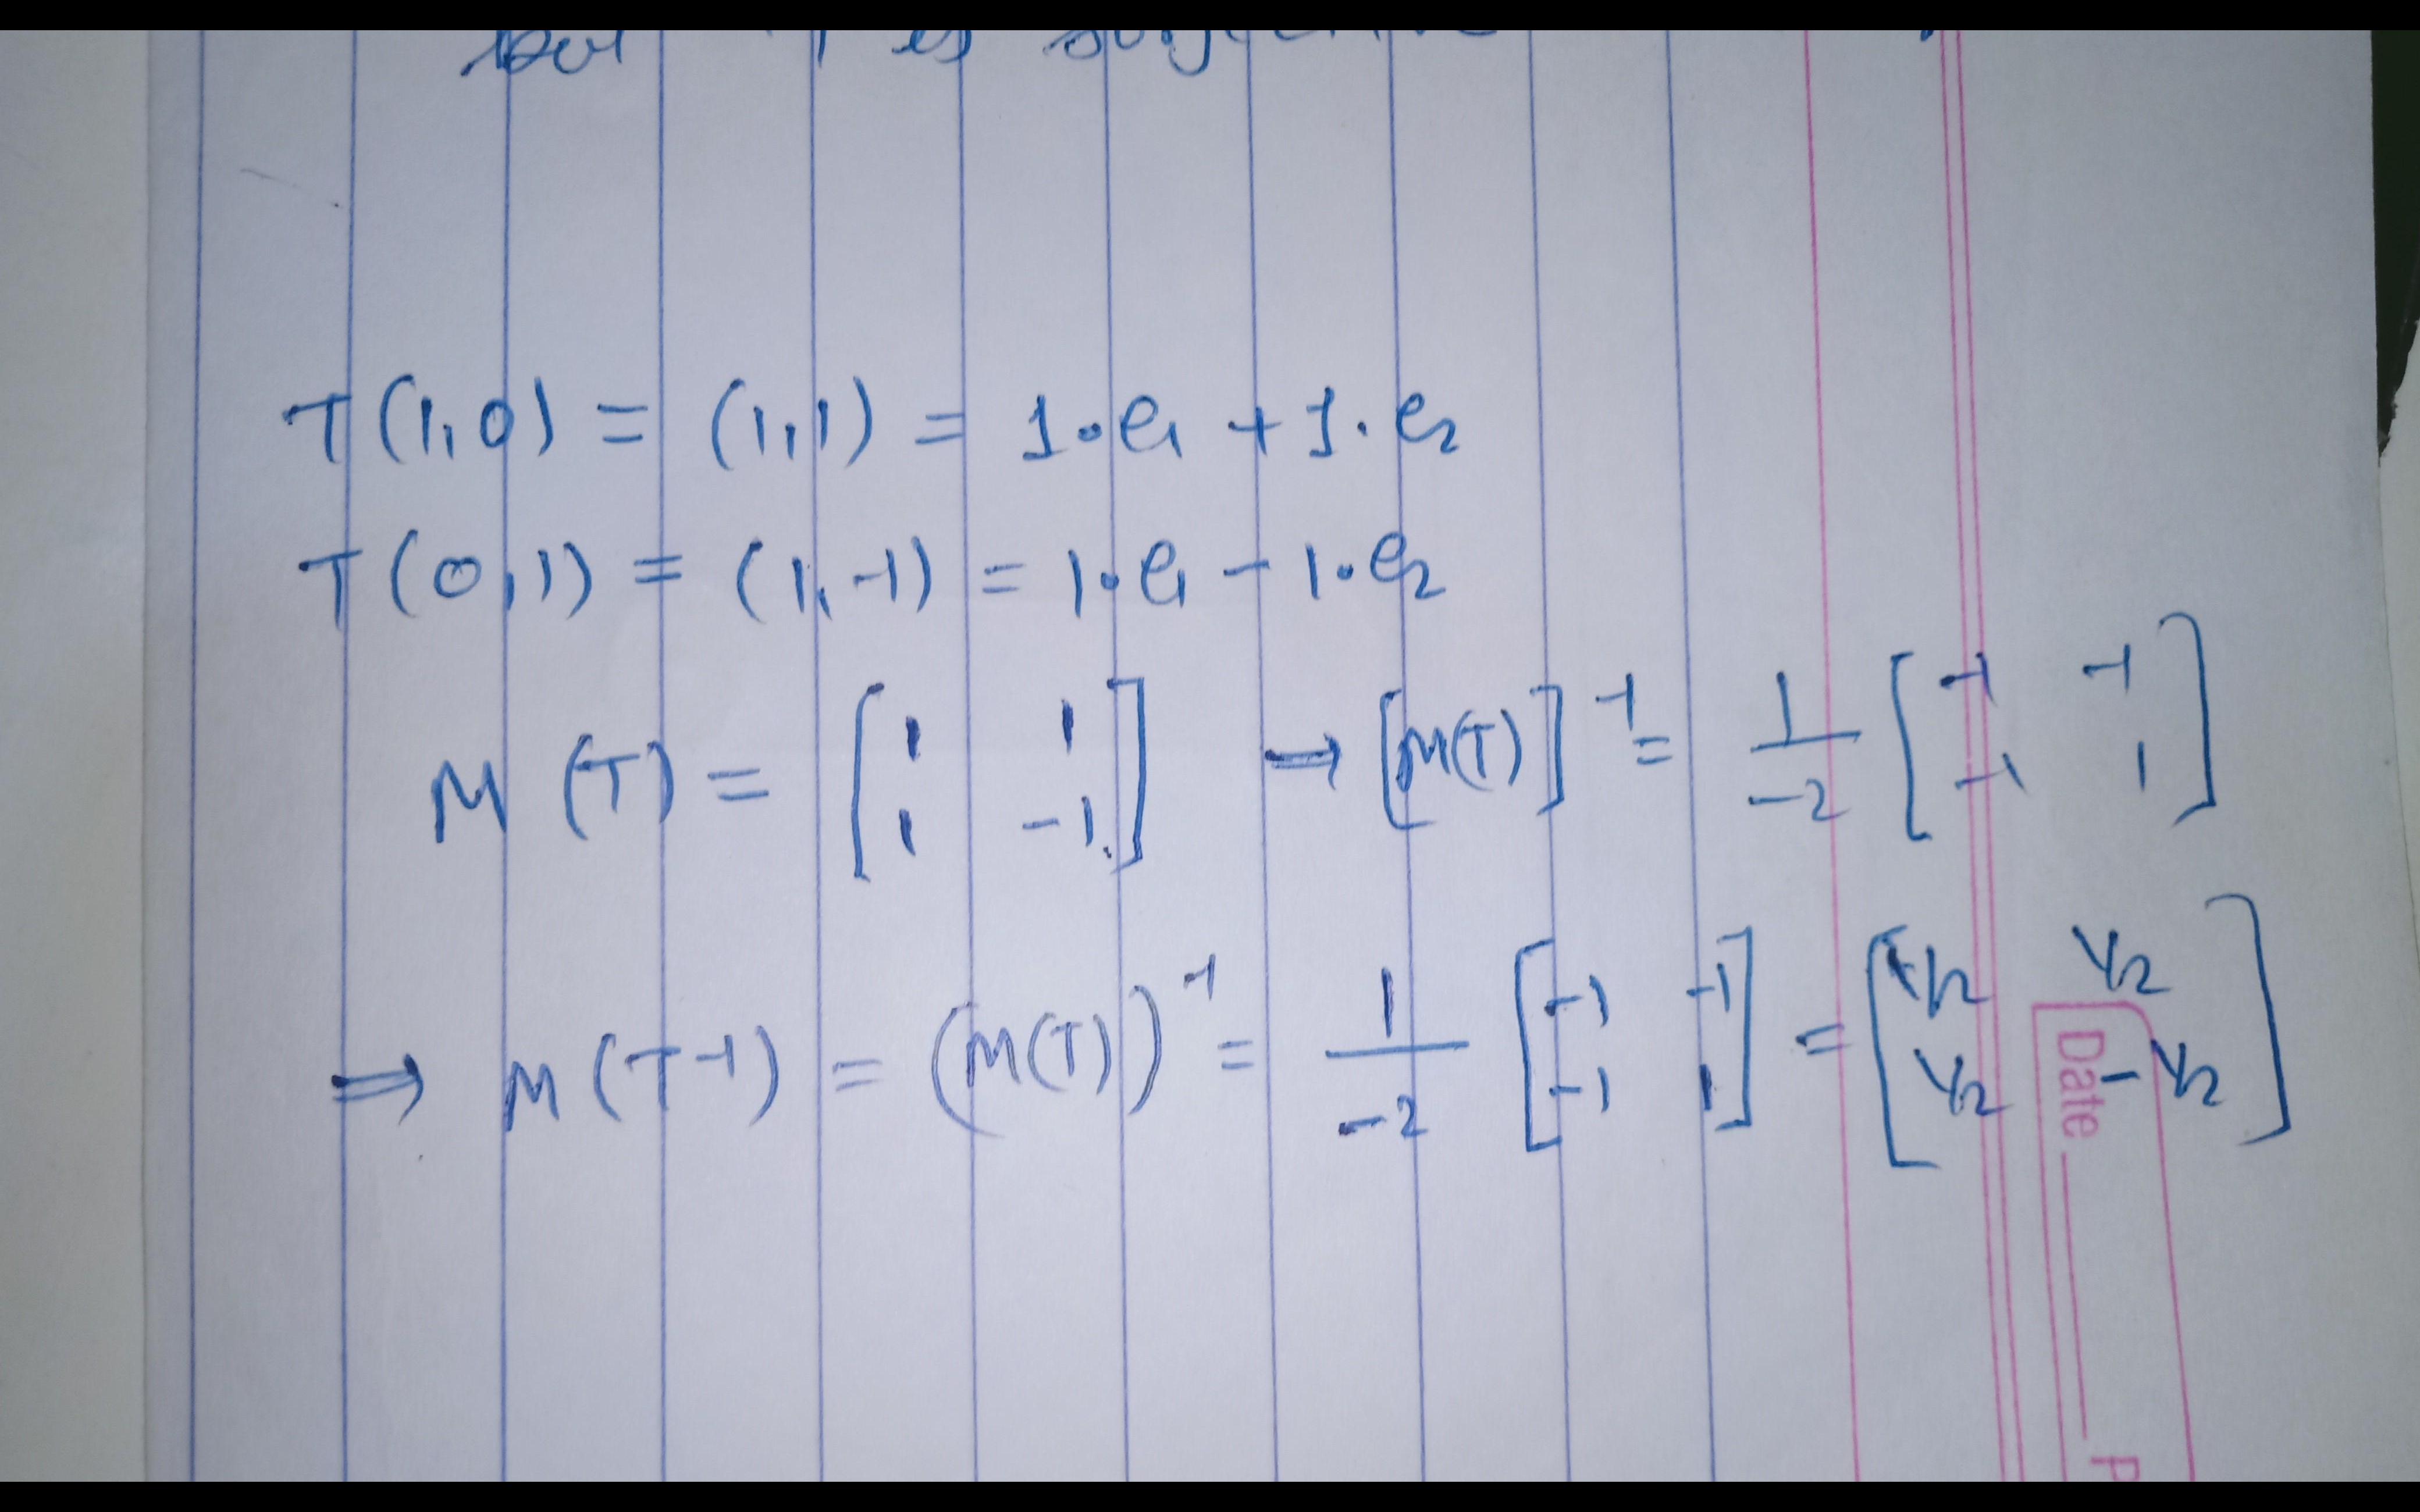 but T is
T(1,0) = (1,1) = 1·e1 + 1·e2
T(0,1) = (1,-1) = 1·e1 - 1·e2
M(T) = [1 1; 1 -1] → [M(T)]^-1 = 1/-2 [-1 -1; -1 1]
⇒ M(T-1) = (M(T))^-1 = 1/-2 [-1 -1; -1 1] = [1/2 1/2; 1/2 -1/2]
Date
P